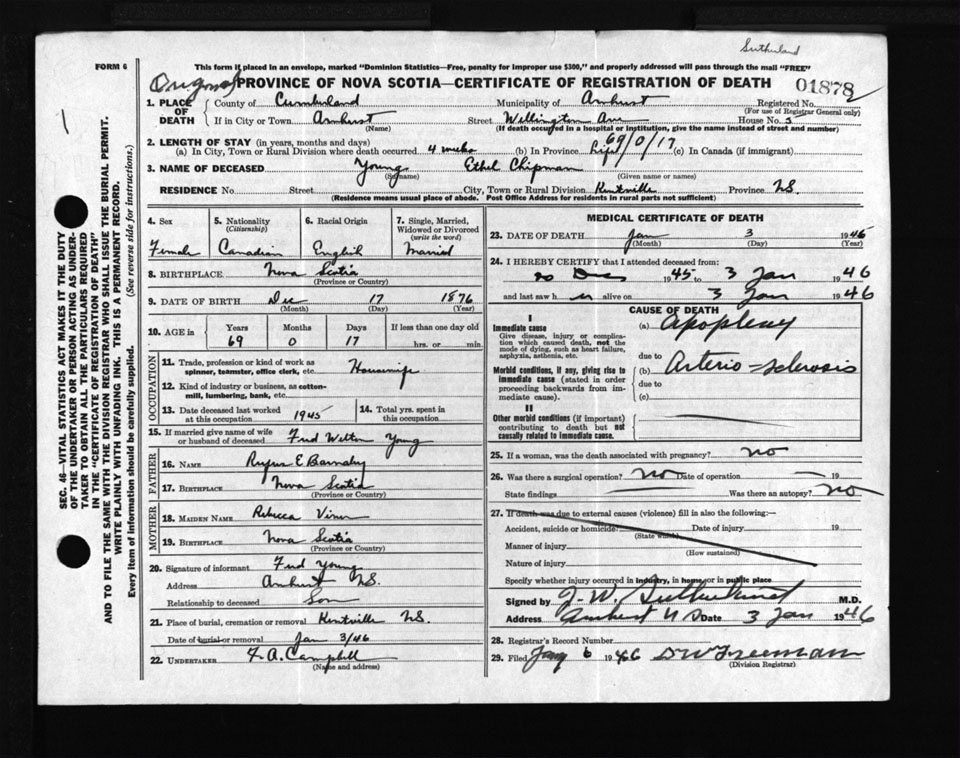 Sutherland
FORM 6
This form if placed in an envelope, marked "Dominion Statistics—Free, penalty for improper use $300," and properly addressed will pass through the mail "FREE"
Original PROVINCE OF NOVA SCOTIA—CERTIFICATE OF REGISTRATION OF DEATH 01878
1. PLACE OF DEATH County of Cumberland Municipality of Amherst Registered No.
(For use of Registrar General only)
If in City or Town Amherst Street Wellington Ave House No. 5
(Name) (If death occurred in a hospital or institution, give the name instead of street and number)
2. LENGTH OF STAY (in years, months and days)
(a) In City, Town or Rural Division where death occurred 4 weeks (b) In Province Life 69/0/17 (c) In Canada (if immigrant)
3. NAME OF DECEASED Young Ethel Chipman
(Surname) (Given name or names)
RESIDENCE No. Street City, Town or Rural Division Kentville Province N.S.
(Residence means usual place of abode. Post Office Address for residents in rural parts not sufficient)
SEC. 46—VITAL STATISTICS ACT MAKES IT THE DUTY
OF THE UNDERTAKER OR PERSON ACTING AS UNDERTAKER
TO OBTAIN ALL THE PARTICULARS REQUIRED
IN THE "CERTIFICATE OF REGISTRATION OF DEATH"
AND TO FILE THE SAME WITH THE DIVISION REGISTRAR WHO SHALL ISSUE THE BURIAL PERMIT.
WRITE PLAINLY WITH UNFADING INK. THIS IS A PERMANENT RECORD.
Every item of information should be carefully supplied. (See reverse side for instructions.)
4. Sex 5. Nationality (Citizenship) 6. Racial Origin 7. Single, Married, Widowed or Divorced (write the word)
Female Canadian English Married
8. BIRTHPLACE Nova Scotia
(Province or Country)
9. DATE OF BIRTH Dec 17 1876
(Month) (Day) (Year)
10. AGE in Years Months Days If less than one day old
69 0 17 hrs. or min.
OCCUPATION
11. Trade, profession or kind of work as spinner, teamster, office clerk, etc. Housewife
12. Kind of industry or business, as cotton-mill, lumbering, bank, etc.
13. Date deceased last worked at this occupation 1945 14. Total yrs. spent in this occupation
15. If married give name of wife or husband of deceased Fred Welton Young
FATHER
16. NAME Rufus E Barnaby
17. BIRTHPLACE Nova Scotia
(Province or Country)
MOTHER
18. MAIDEN NAME Rebecca
19. BIRTHPLACE Nova Scotia
(Province or Country)
20. Signature of informant Fred Young
Address Amherst N.S.
Relationship to deceased Son
21. Place of burial, cremation or removal Kentville N.S.
Date of burial or removal Jan 3/46
22. UNDERTAKER F. A. Campbell
(Name and address)
MEDICAL CERTIFICATE OF DEATH
23. DATE OF DEATH Jan 3 1946
(Month) (Day) (Year)
24. I HEREBY CERTIFY that I attended deceased from:
20 Dec 1945 to 3 Jan 1946
and last saw her alive on 3 Jan 1946
CAUSE OF DEATH
I
Immediate cause (a) Apoplexy
Give disease, injury or complication which caused death, not the mode of dying, such as heart failure, asphyxia, asthenia, etc.
due to
Morbid conditions, if any, giving rise to immediate cause (stated in order proceeding backwards from immediate cause). (b) Arterio-sclerosis
due to
(c)
II
Other morbid conditions (if important) contributing to death but not causally related to immediate cause.
25. If a woman, was the death associated with pregnancy? no
26. Was there a surgical operation? no Date of operation 19
State findings Was there an autopsy? no
27. If death was due to external causes (violence) fill in also the following:—
Accident, suicide or homicide Date of injury 19
(State which)
Manner of injury
(How sustained)
Nature of injury
Specify whether injury occurred in industry, in home or in public place
Signed by J. W. Sutherland M.D.
Address Amherst N S Date 3 Jan 1946
28. Registrar's Record Number
29. Filed Jany 6 1946 Freeman
(Division Registrar)